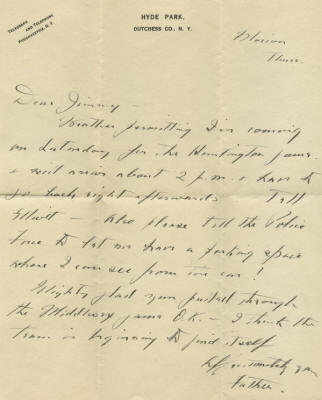 TELEGRAPH
AND TELEPHONE
POUGHKEEPSIE, N. Y.
HYDE PARK,
DUTCHESS CO., N. Y.
Marion
Thurs.
Dear Jimmy –
Weather permitting I'm coming
on Saturday for the Huntington game
& will arrive about 2 p.m. & have to
go back right afterwards Tell
Elliott – Also please tell the Police
force to let me have a parking space
where I can see from the car!
Mighty glad you pulled through
the Middlesex game O.K. – I think the
team is beginning to find itself
Affectionately your
Father.